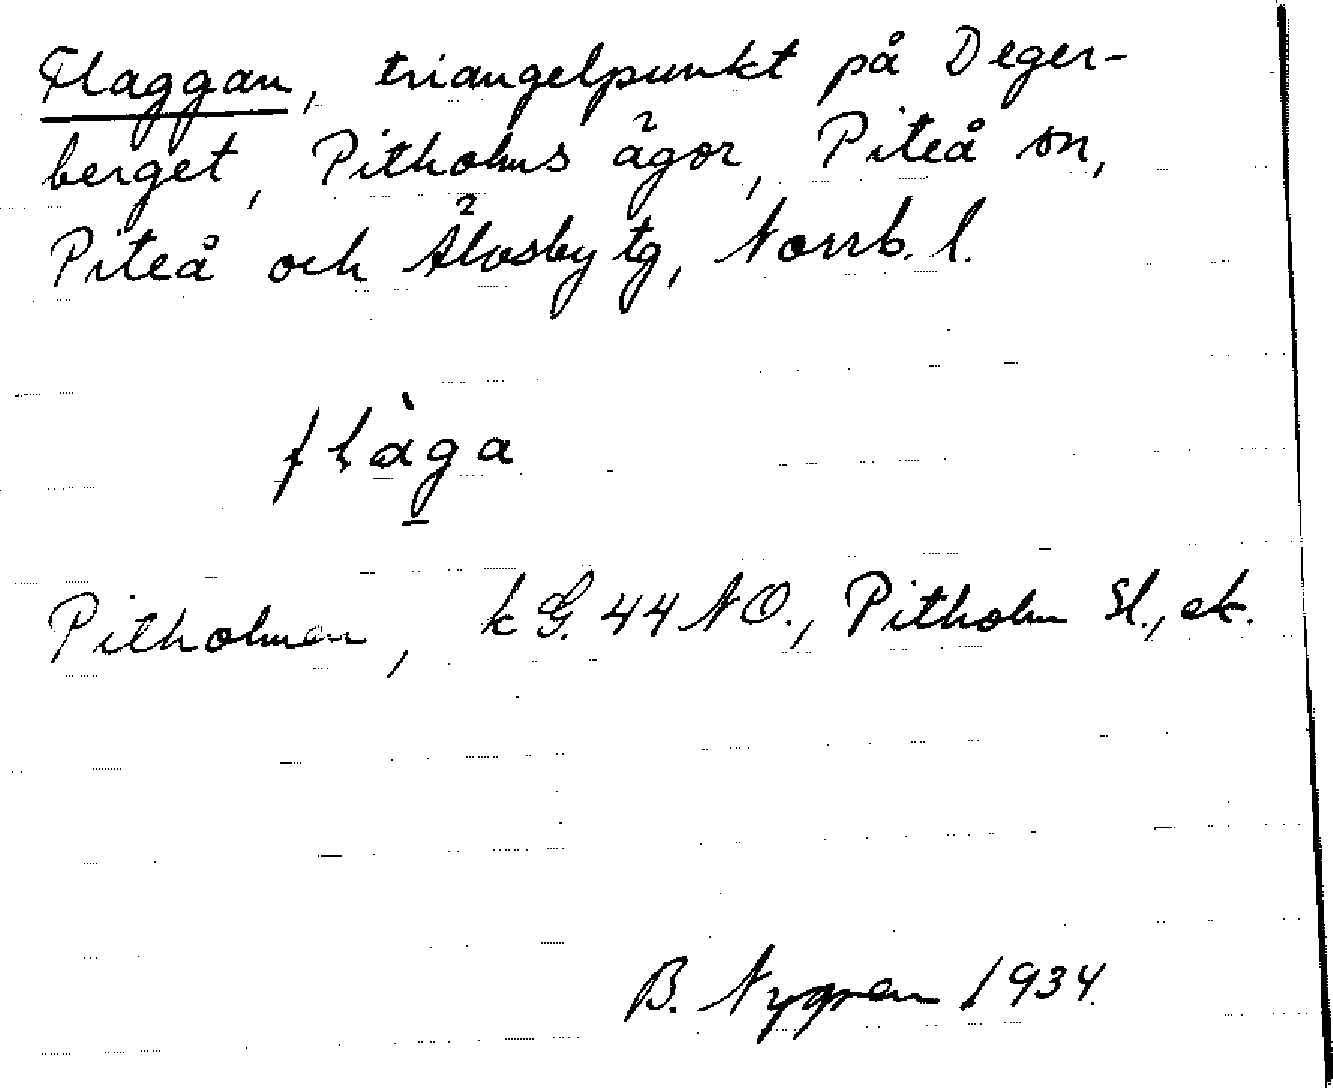 Flaggan, triangelpunkt på Deger-
berget, Pitholms ägor, Piteå sn,
Piteå och Älvsby tg, Norrb. l.
flàga
Pitholmen, k G. 44 NO., Pitholm Sl., ek.
B. Nygren 1934.